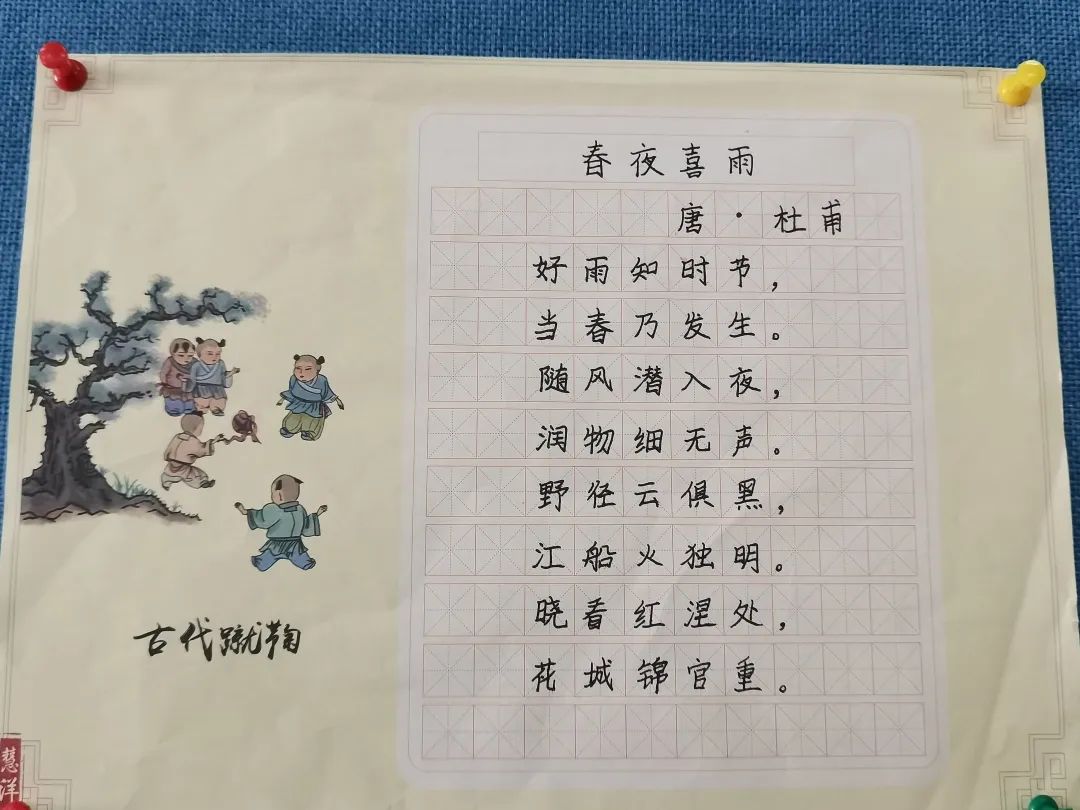 春夜喜雨
唐·杜甫
好雨知时节，
当春乃发生。
随风潜入夜，
润物细无声。
野径云俱黑，
江船火独明。
晓看红涅处，
花城锦官重。
古代蹴鞠
慧洋